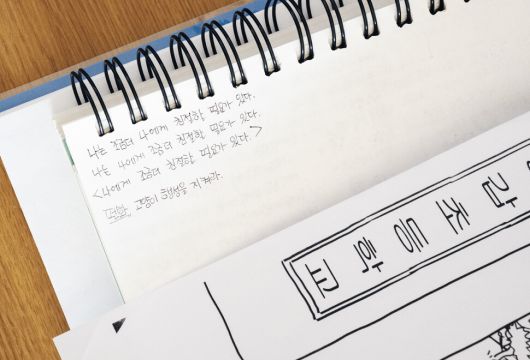 나는 조금더 나에게 친절할 필요가 있다.
나는 나에게 조금 더 친절할 필요가 있다.
<나에게 조금더 친절할 필요가 있다.>
고양이 행성을 지켜라.
초등학교